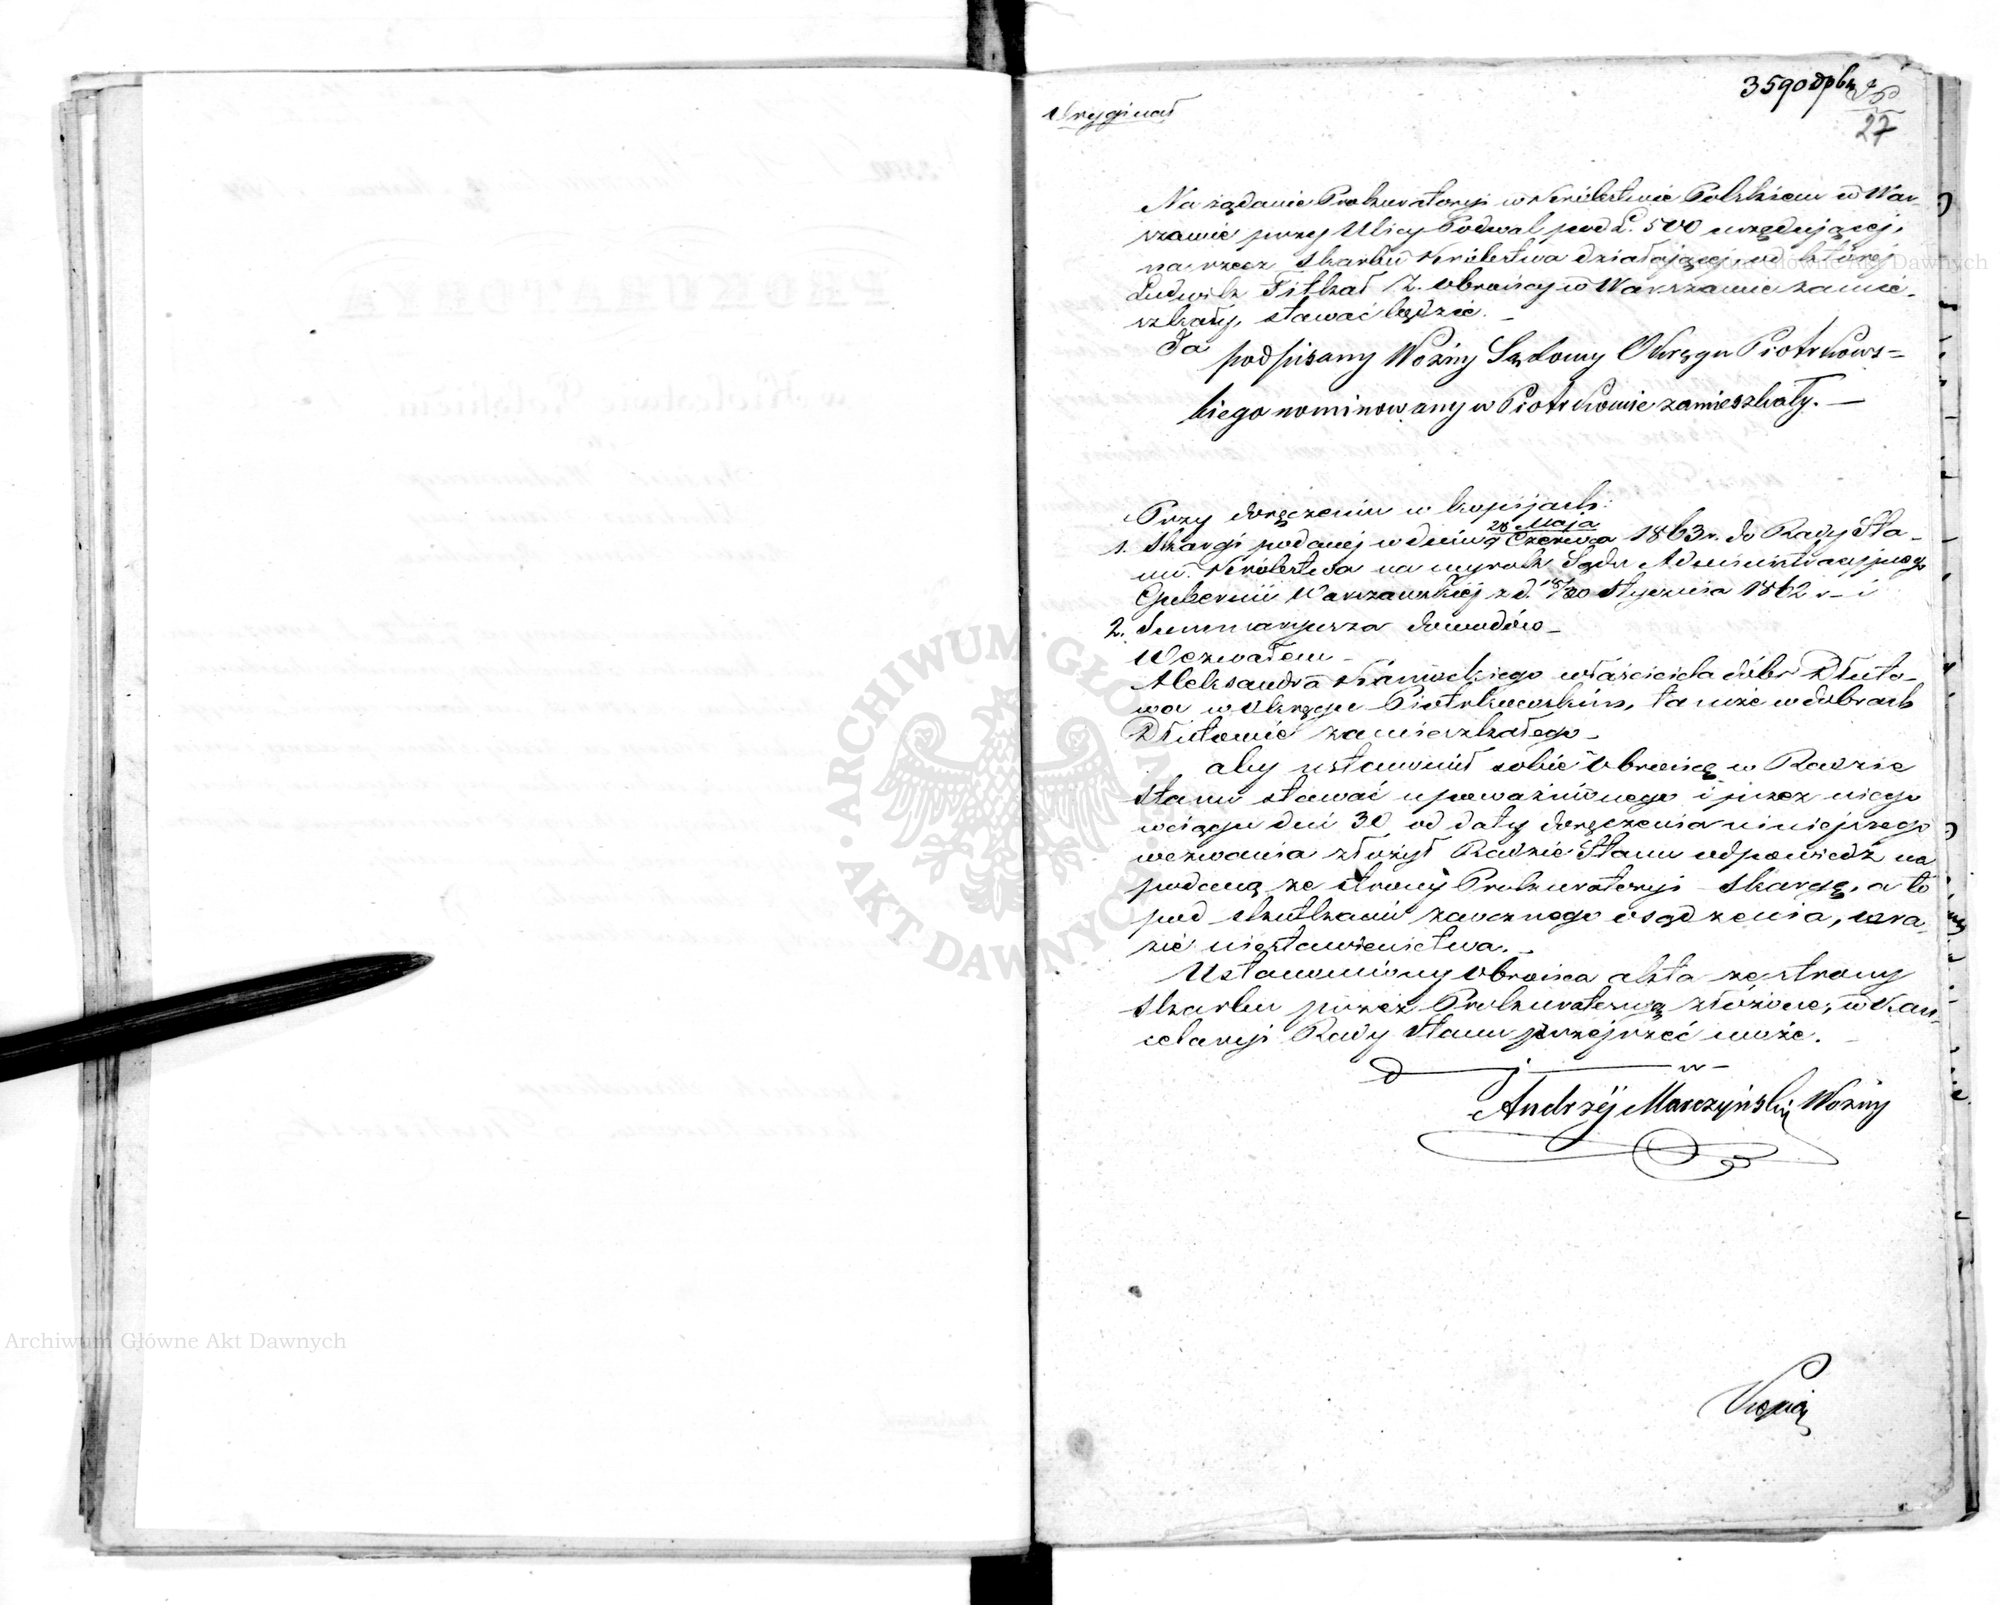 3590
27
Oryginał
Na żądanie Prokuratoryi w Królestwie Polskiem w War-
szawie przy Ulicy Podwal pod L. 500 urzędującej,
na rzecz Skarbu Królestwa działającej, od której
Ludwik Obrońcy w Warszawie zamie-
szkały, stawać będzie. _
Ja
podpisany Woźny Sądowy Okręgu Piotrkows=
kiego nominowany w Piotrkowie zamieszkały. —
Przy doręczeniu w kopijach:
1. Skargi podanej w dniu 28 Maja / 9 Czerwca 1863 r. do Rady Sta-
nu Królestwa na wyrok Sądu Administracyjnego
Gubernii Warszawskiej z d. 18/30 Stycznia 1862 r - i
2. Summaryusza dowodów _
Wezwałem _
Aleksandra właściciela dóbr Dłuto-
wa w Okręgu Piotrkowskim, tamże w dobrach
Dłutowie zamieszkałego _
aby ustanowił sobie Obrońcę w Radzie
Stanu stawać upoważnionego i przez niego
w ciągu dni 30 od daty doręczenia niniejszego
wezwania złożył Radzie Stanu odpowiedź na
podaną ze strony Prokuratoryi Skargę, a to
pod skutkami zaocznego osądzenia, w ra-
zie niestawienictwa. _
Ustanowiony Obrońca akta ze strony
Skarbu przez Prokuratoryą złożone, w Kan-
celaryi Rady Stanu przejrzeć może. _
Andrzéj Marczyński Woźny
Archiwum Główne Akt Dawnych
ARCHIWUM GŁÓWNE AKT DAWNYCH
Archiwum Główne Akt Dawnych